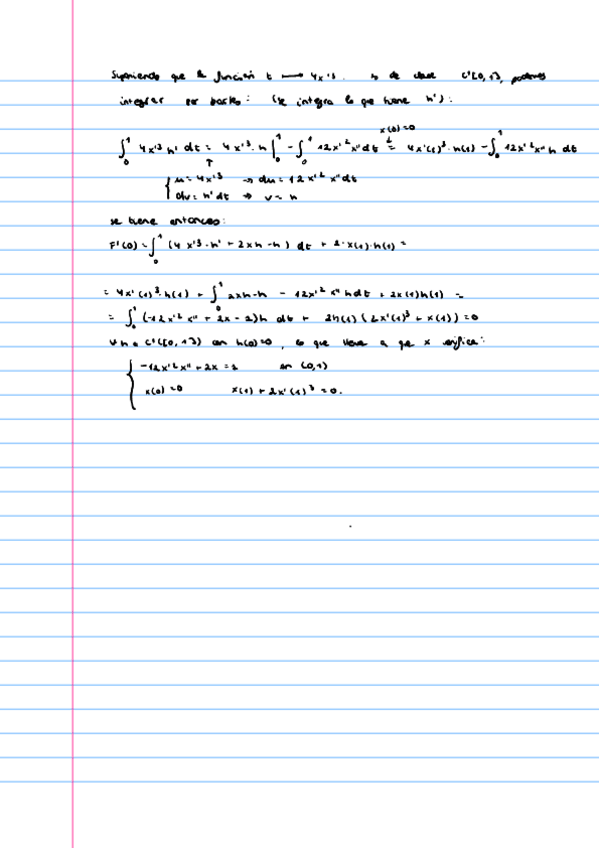 Suponiendo que la función t ⟼ 4x'³ es de clase C¹[0,1], podemos
integrar por partes: (se integra lo que tiene h'):
x(0)=0
∫₀¹ 4x'³ h' dt = 4x'³·h |₀¹ - ∫₀¹ 12x'² x'' dt = 4x'(1)³·h(1) - ∫₀¹ 12x'² x'' h dt
{ u = 4x'³ → du = 12x'² x'' dt
dv = h' dt → v = h
se tiene entonces:
F'(0) = ∫₀¹ (4x'³·h' + 2xh - h) dt + 2·x(1)·h(1) =
= 4x'(1)³·h(1) + ∫₀¹ 2xh - h - 12x'² x'' h dt + 2x(1)h(1) =
= ∫₀¹ (-12x'² x'' + 2x - 2)h dt + 2h(1)(2x'(1)³ + x(1)) = 0
∀ h ∈ C¹([0,1]) con h(0)=0, lo que lleva a que x verifica:
{ -12x'² x'' + 2x = 2 en (0,1)
x(0)=0 x(1) + 2x'(1)³ = 0.